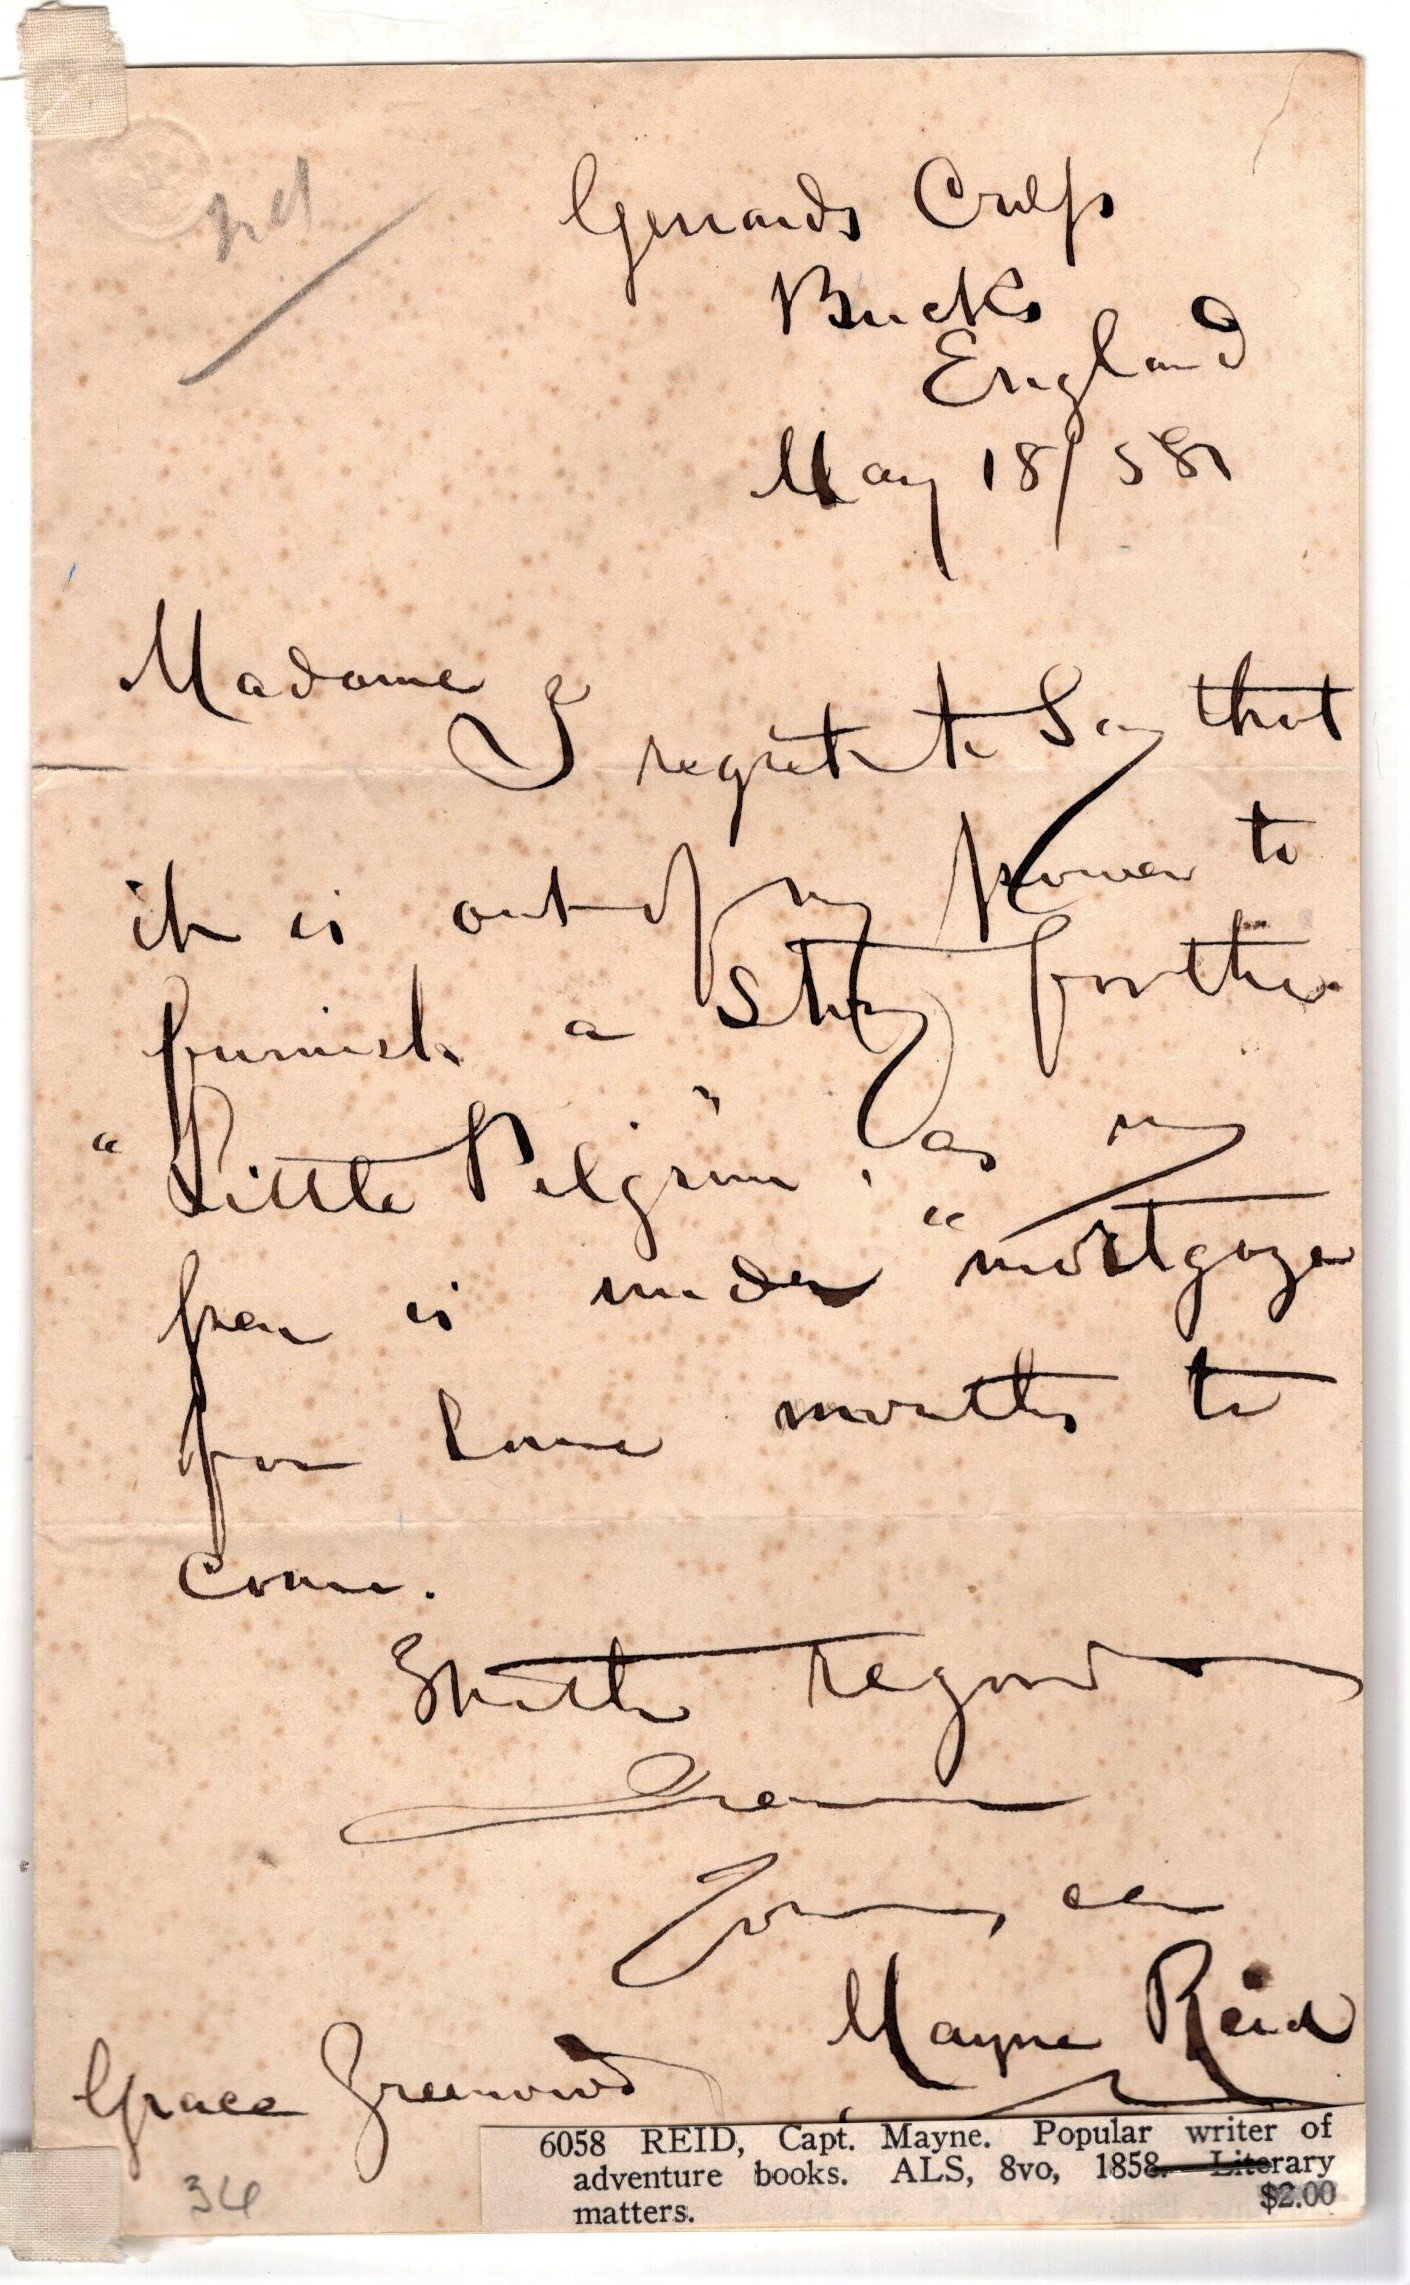 Gerrards Cross
Bucks
England
May 18/58
Madame
I regret to say that
it is out of my power to
furnish a story for the
"Little Pilgrim", as my
pen is under "mortgage"
for some months to
come.
With regard
Yours, &c
Mayne Reid
Grace Greenwood
34
6058 REID, Capt. Mayne. Popular writer of
adventure books. ALS, 8vo, 1858. Literary
matters. $2.00